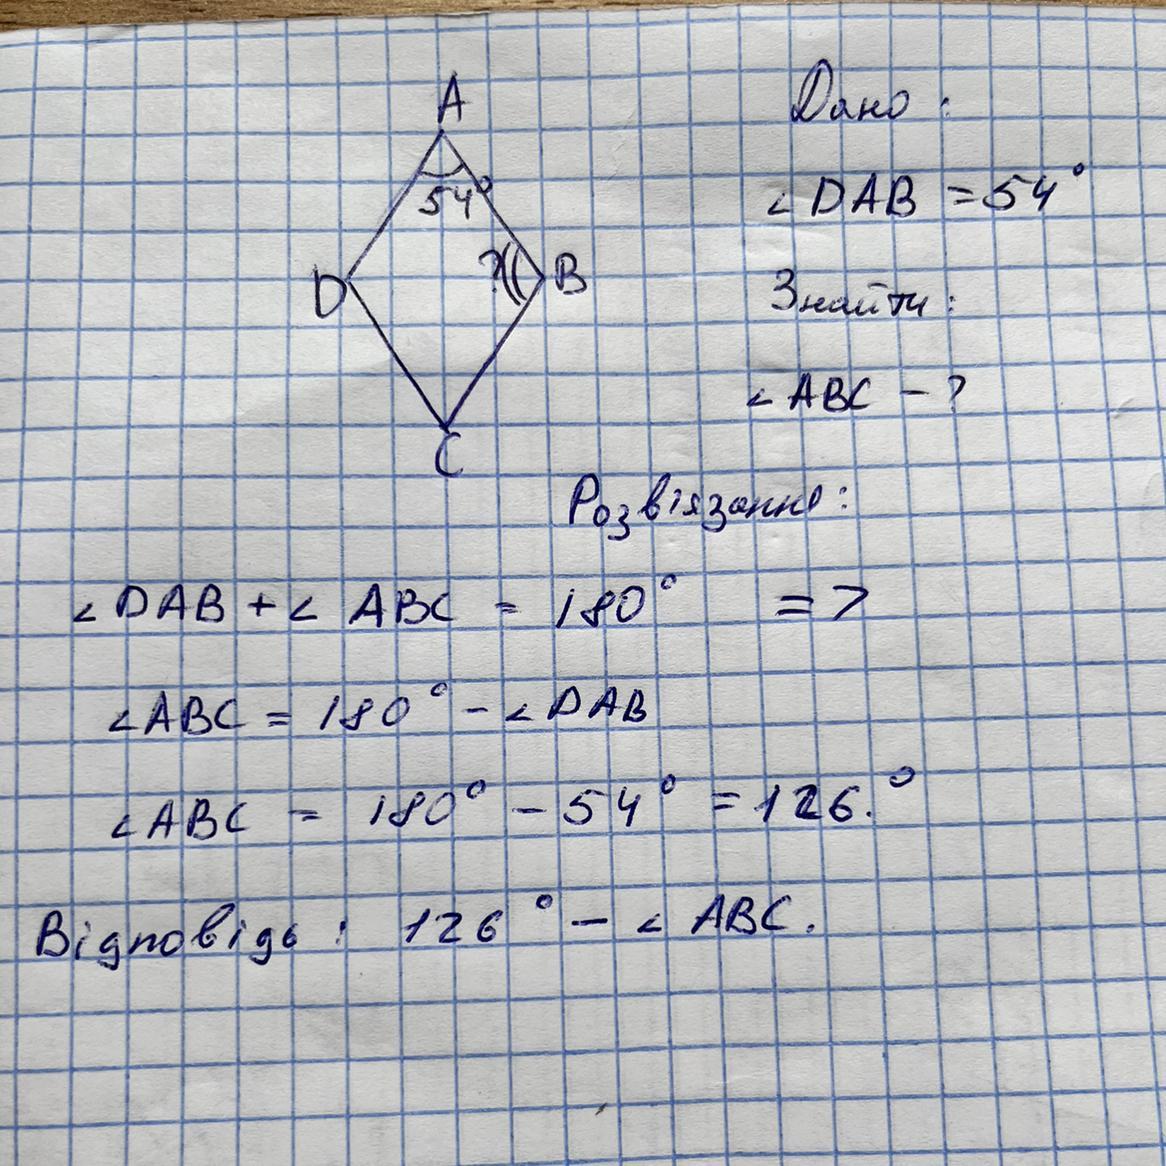 A
54°
D
?
B
C
Дано:
∠DAB = 54°
Знайти:
∠ABC - ?
Розвіязання:
∠DAB + ∠ABC = 180° =>
∠ABC = 180° - ∠DAB
∠ABC = 180° - 54° = 126.°
Відповідь: 126° - ∠ABC.